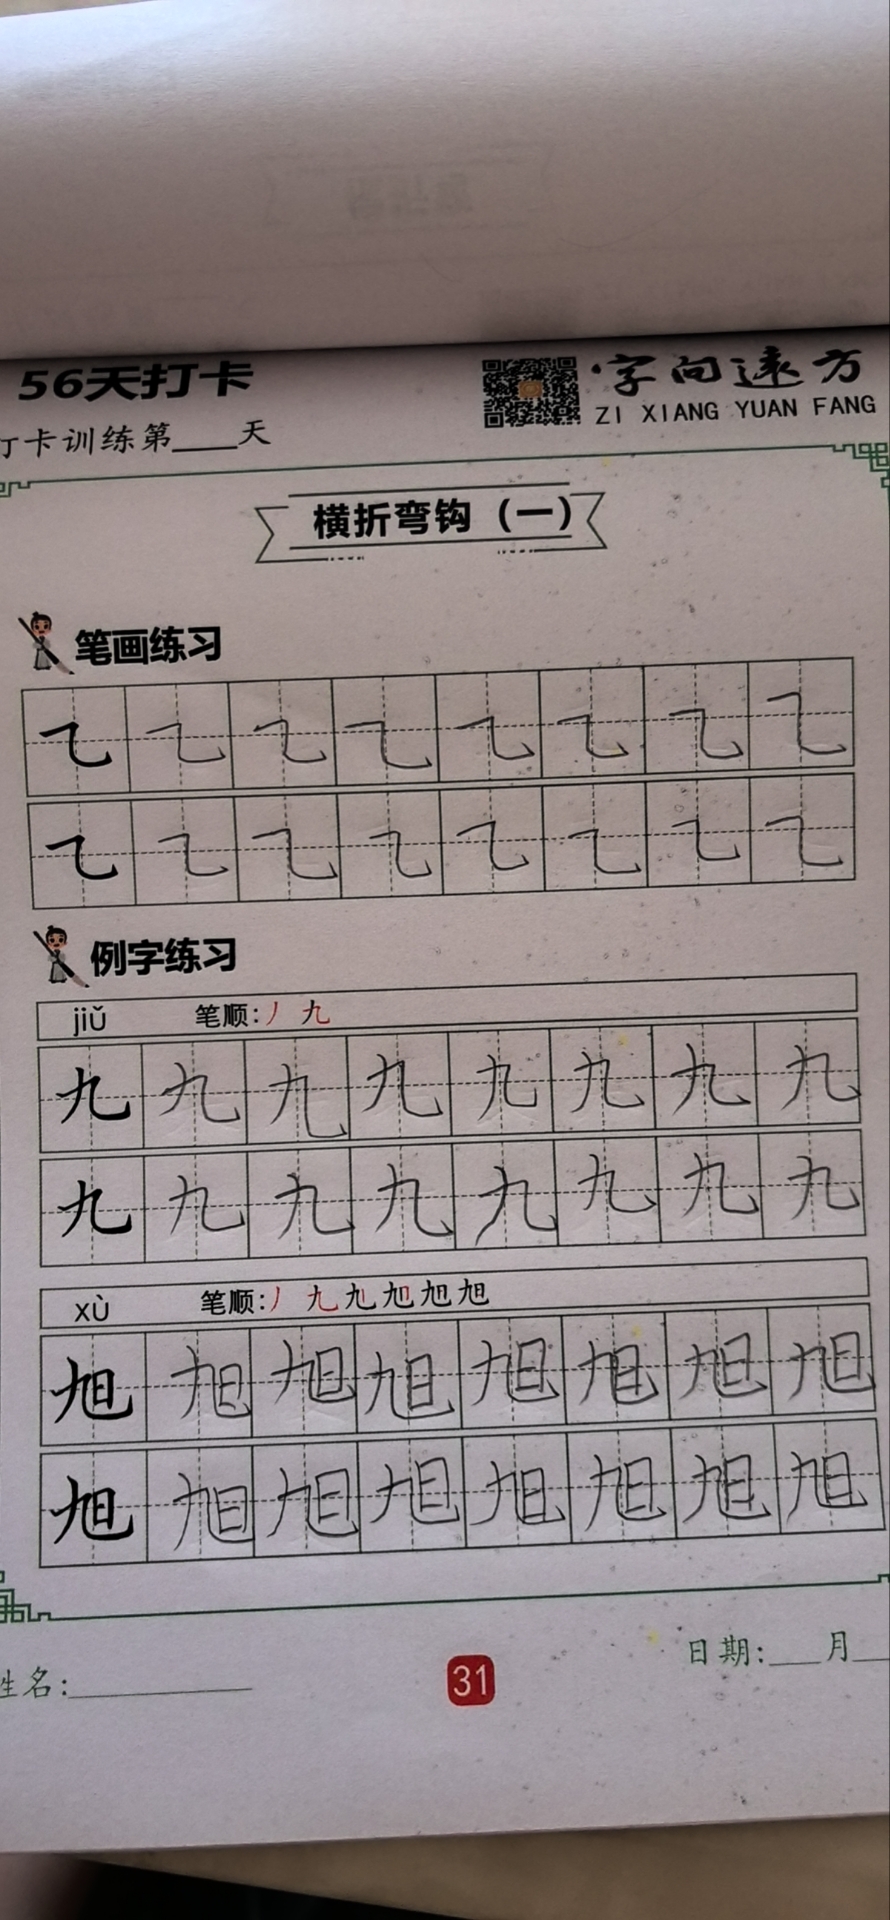 56天打卡
字向远方
ZI XIANG YUAN FANG
打卡训练第____天
横折弯钩（一）
笔画练习
㇈ ㇈ ㇈ ㇈ ㇈ ㇈ ㇈ ㇈
㇈ ㇈ ㇈ ㇈ ㇈ ㇈ ㇈ ㇈
例字练习
jiǔ 笔顺：丿 九
九 九 九 九 九 九 九 九
九 九 九 九 九 九 九 九
xù 笔顺：丿 九 旭 旭 旭
旭 旭 旭 旭 旭 旭 旭 旭
旭 旭 旭 旭 旭 旭 旭 旭
姓名：____
31
日期：___月__